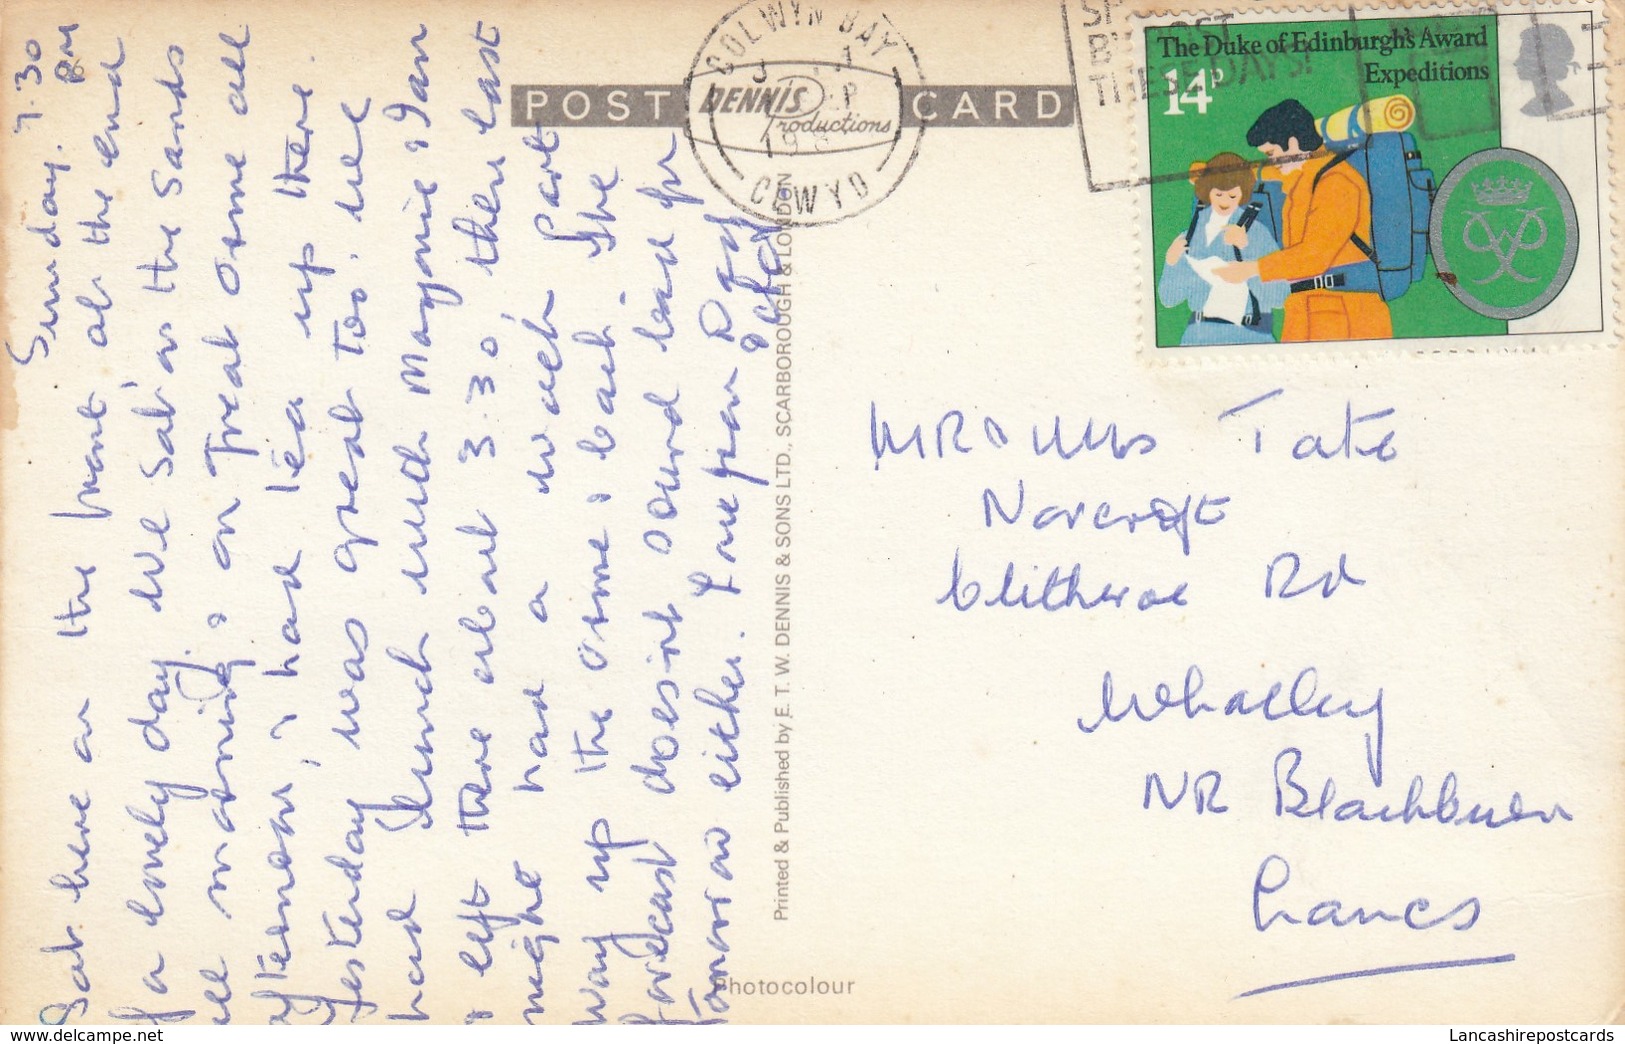 Sunday. 7.30 PM
Sat here on the front at the end
of a lovely day. We sat on the sands
all morning, & on Great Orme all
afternoon, & had tea up there.
Yesterday was great too. We
had lunch with Marjorie & Ian
& left there about 3.30, then last
night had a walk part
way up the Orme & back. The
forecast doesn't sound bad for
Tomorrow either. Love from Dad
POST CARD
DENNIS Productions
COLWYN BAY
CLWYD
BY POST
THESE DAYS!
The Duke of Edinburgh's Award
Expeditions
14P
MR & Mrs Tate
Norcroft
Clitheroe Rd
Whalley
NR Blackburn
Lancs
Printed & Published by E. T. W. DENNIS & SONS LTD., SCARBOROUGH & LONDON
Photocolour
Lancashirepostcards